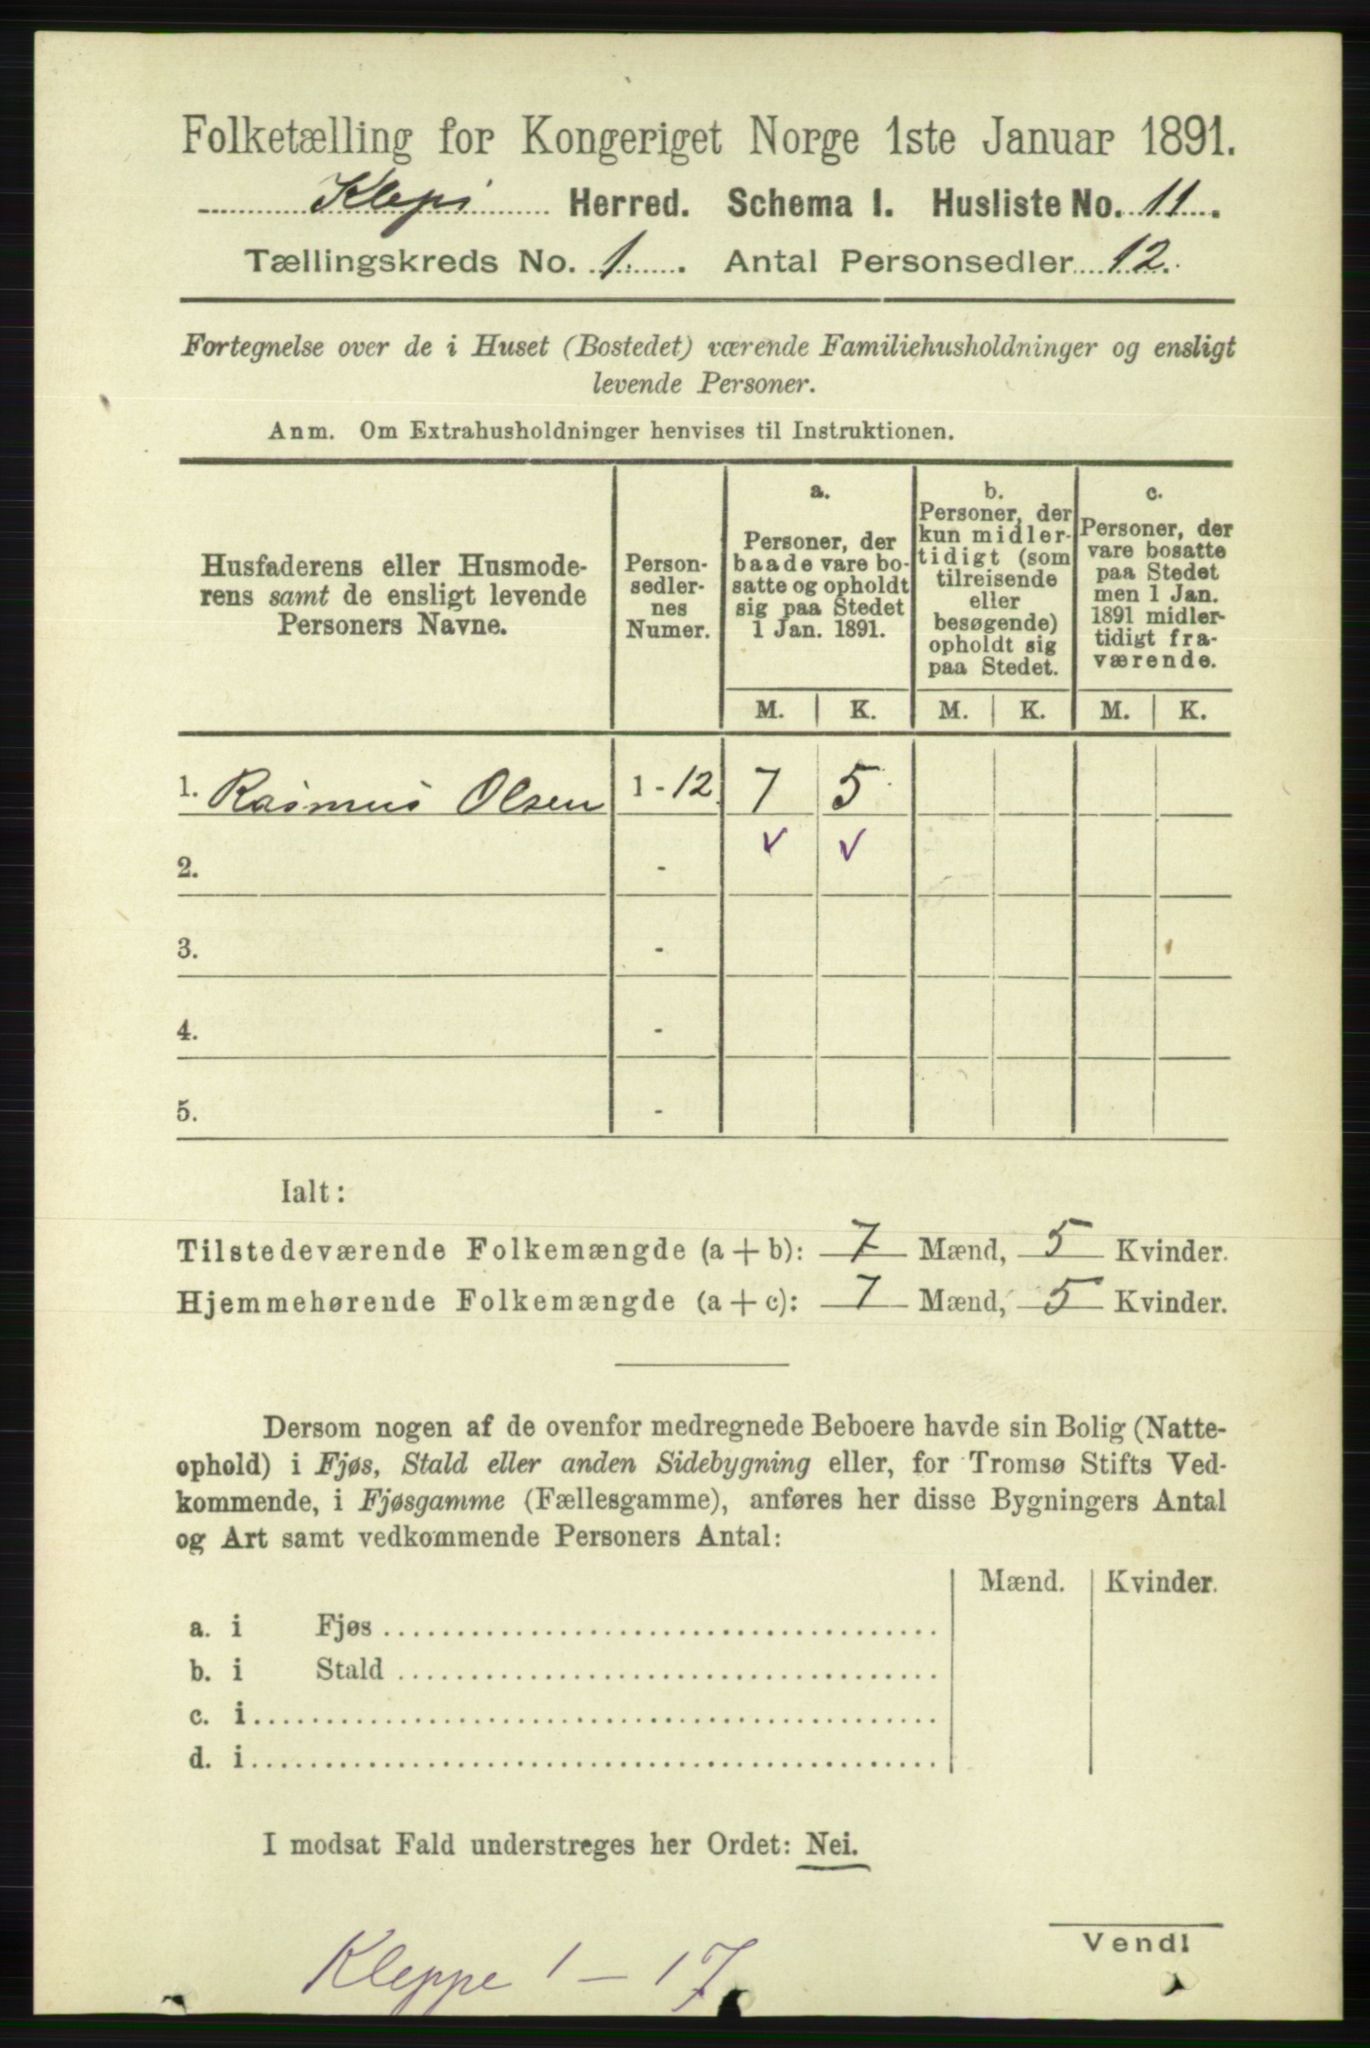 Folketælling for Kongeriget Norge 1ste Januar 1891.
Klepp Herred. Schema I. Husliste No. 11.
Tællingskreds No. 1. Antal Personsedler 12.
Fortegnelse over de i Huset (Bostedet) værende Familiehusholdninger og ensligt
levende Personer.
Anm. Om Extrahusholdninger henvises til Instruktionen.
Husfaderens eller Husmode-
rens samt de ensligt levende
Personers Navne.
Person-
sedler-
nes
Numer.
a.
Personer, der
baade vare bo-
satte og opholdt
sig paa Stedet
1 Jan. 1891.
b.
Personer, der
kun midler-
tidigt (som
tilreisende
eller
besøgende)
opholdt sig
paa Stedet.
c.
Personer, der
vare bosatte
paa Stedet
men 1 Jan.
1891 midler-
tidigt fra-
værende.
M. K. M. K. M. K.
1. Rasmus Olsen 1 - 12 7 5
✓ ✓
2. -
3. -
4. -
5. -
Ialt:
Tilstedeværende Folkemængde (a + b): 7 Mænd, 5 Kvinder.
Hjemmehørende Folkemængde (a + c): 7 Mænd, 5 Kvinder.
Dersom nogen af de ovenfor medregnede Beboere havde sin Bolig (Natte-
ophold) i Fjøs, Stald eller anden Sidebygning eller, for Tromsø Stifts Ved-
kommende, i Fjøsgamme (Fællesgamme), anføres her disse Bygningers Antal
og Art samt vedkommende Personers Antal:
Mænd. Kvinder.
a. i Fjøs
b. i Stald
c. i
d. i
I modsat Fald understreges her Ordet: Nei.
Vend!
Kleppe 1 - 17